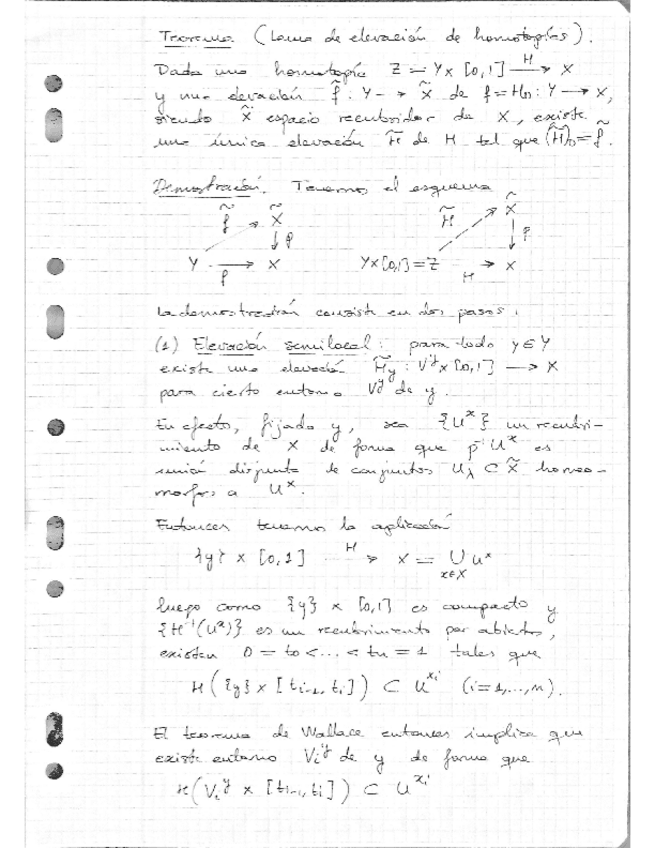 Teorema. (Lema de elevación de homotopías).
Dada una homotopía Z = Y x [0,1] —H→ X
y una elevación f̃ : Y → X̃ de f = H₍₀₎ : Y → X,
siendo X̃ espacio recubridor de X, existe
una única elevación H̃ de H tal que (H̃)₀ = f̃.
Demostración. Tenemos el esquema
f̃ X̃ H̃ X̃
↓ p ↓ p
Y → X Y x [0,1] = Z → X
f H
La demostración consiste en dos pasos:
(1) Elevación semilocal: para todo y ∈ Y
existe una elevación H̃y : Vʸ x [0,1] → X
para cierto entorno Vʸ de y.
En efecto, fijado y, sea {Uˣ} un recubri-
miento de X de forma que p⁻¹Uˣ es
unión disjunta de conjuntos U_λ ⊂ X̃ homeo-
morfos a Uˣ.
Entonces tenemos la aplicación
{y} x [0,1] —H→ X = ∪ Uˣ
x∈X
luego como {y} x [0,1] es compacto y
{H⁻¹(Uˣ)} es un recubrimiento por abiertos,
existen 0 = t₀ < ... < tn = 1 tales que
H({y} x [tᵢ₋₁, tᵢ]) ⊂ U^xᵢ (i=1,...,n).
El teorema de Wallace entonces implica que
existe entorno Vᵢʸ de y de forma que
H(Vᵢʸ x [tᵢ₋₁, tᵢ]) ⊂ U^xᵢ